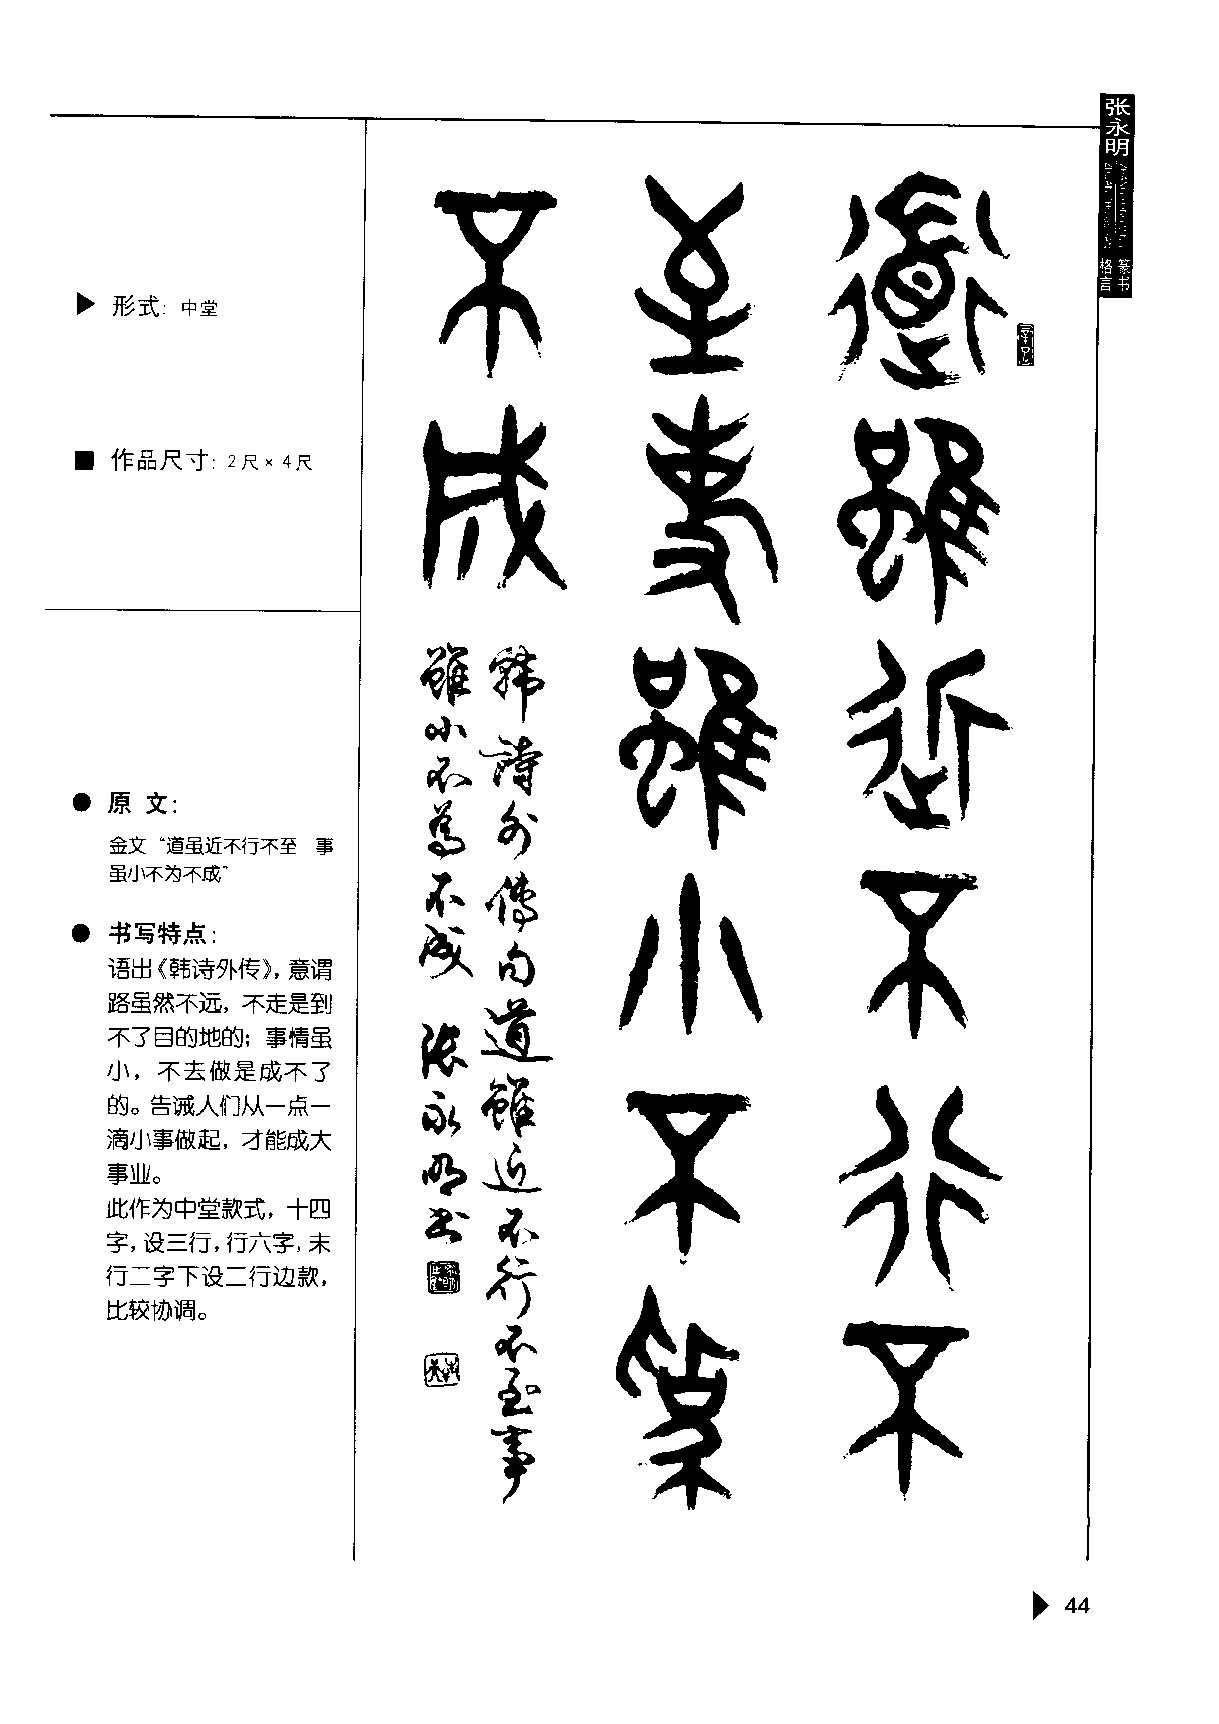 张永明
篆书
格言
道虽近不行不
至事虽小不为
不成
韩诗外传句道虽近不行不至事
虽小不为不成 张永明书
形式：中堂
作品尺寸：2尺×4尺
原文：
金文“道虽近不行不至 事
虽小不为不成”
书写特点：
语出《韩诗外传》，意谓
路虽然不远，不走是到
不了目的地的；事情虽
小，不去做是成不了
的。告诫人们从一点一
滴小事做起，才能成大
事业。
此作为中堂款式，十四
字，设三行，行六字，末
行二字下设二行边款，
比较协调。
44